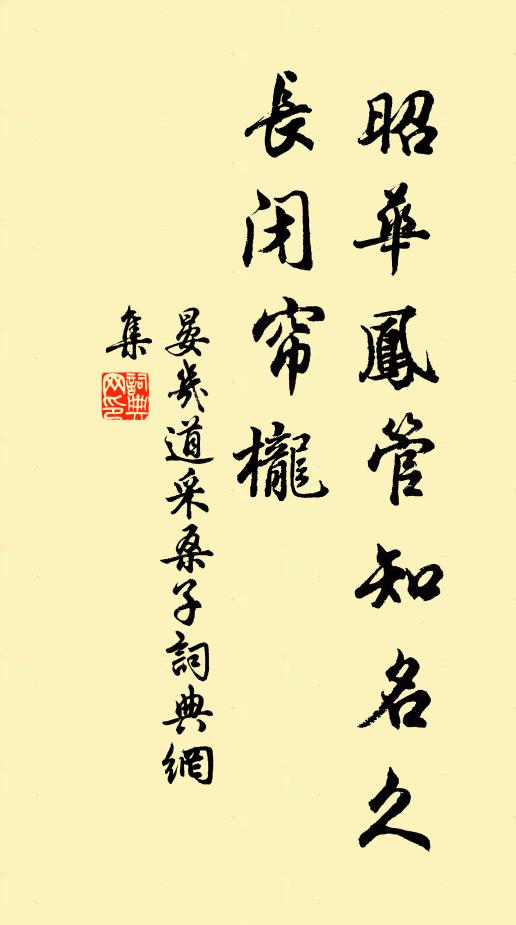 昭華鳳管知名久
長闭帘櫳
晏幾道采桑子詞典網
集
詞典網印